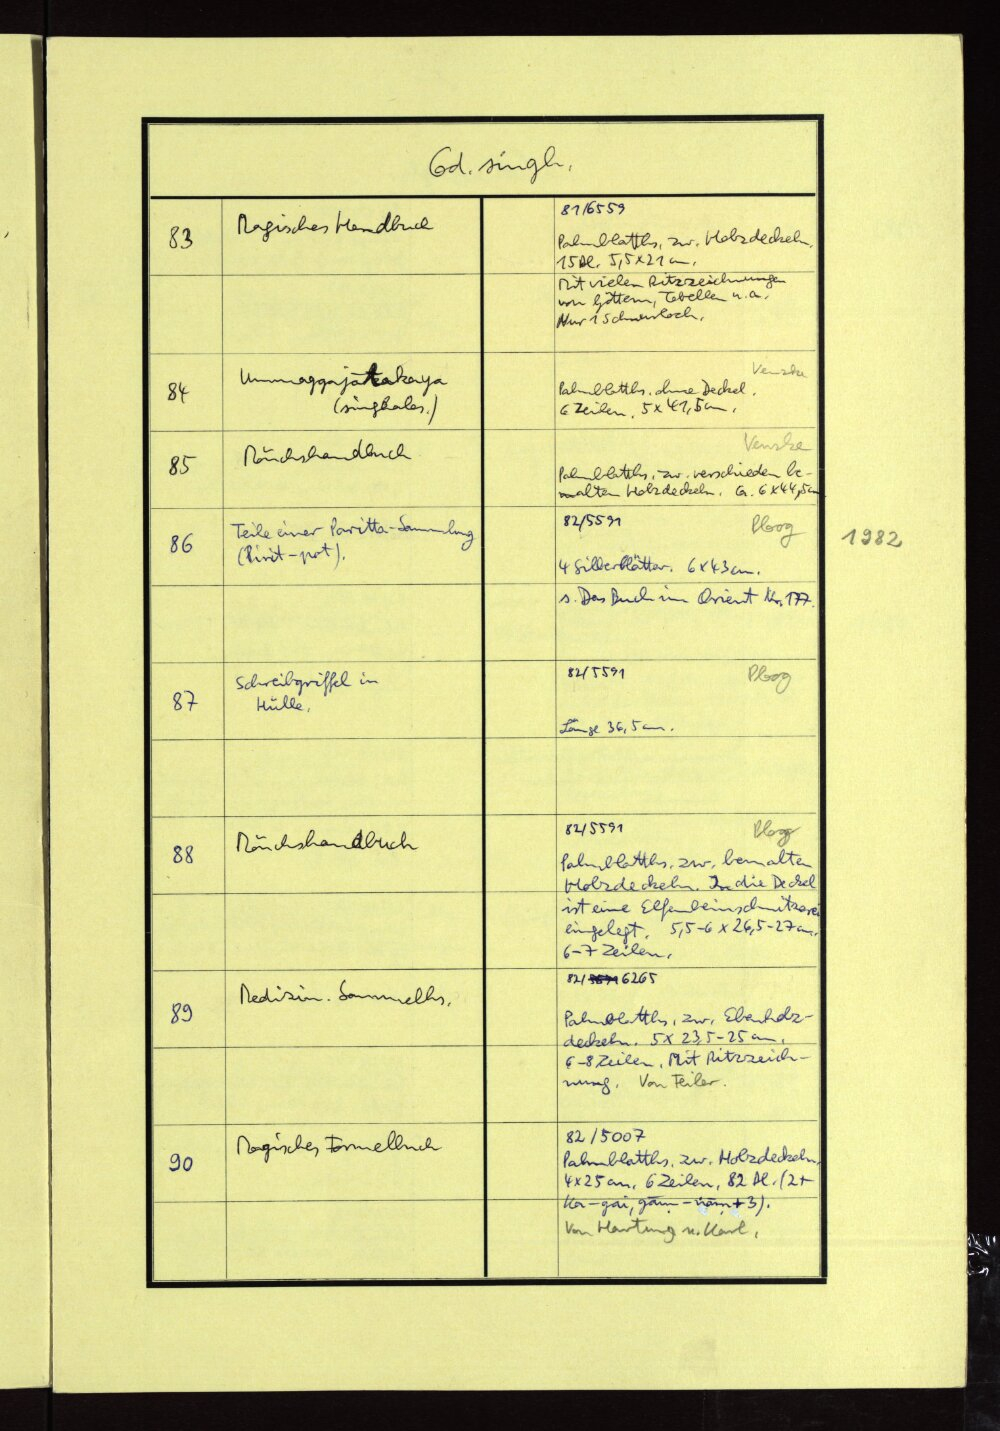 Cod. singh.
83
Magisches Handbuch
81/6559
Palmblatths. zw. Holzdeckeln.
15 Bl. 5,5×21 cm.
Mit vielen Ritzzeichnungen
von Göttern, Tabellen u.a.
Nur 1 Schnurloch.
84
Ummaggajātakaya
(singhales.)
Venzke
Palmblatths. ohne Deckel.
6 Zeilen. 5×41,5 cm.
85
Mönchshandbuch
Venzke
Palmblatths. zw. verschieden be-
malten Holzdeckeln. Ca. 6×44,5 cm
86
Teile einer Paritta-Sammlung
(Pirit-pot).
82/5591
Ploog
4 Silberblätter. 6×43 cm.
s. Das Buch im Orient Nr. 177.
1982
87
Schreibgriffel in
Hülle.
82/5591
Ploog
Länge 36,5 cm.
88
Mönchshandbuch
82/5591
Ploog
Palmblatths. zw. bemalten
Holzdeckeln. In die Deckel
ist eine Elfenbeinschnitzerei
eingelegt. 5,5-6×26,5-27 cm.
6-7 Zeilen.
89
Medizin. Sammelhs.
82/ 6265
Palmblatths. zw. Ebenholz-
deckeln. 5×23,5-25 cm.
6-8 Zeilen. Mit Ritzzeich-
nung. Von Feiler.
90
Magisches Formelbuch
82/5007
Palmblatths. zw. Holzdeckeln.
4×25 cm. 6 Zeilen, 82 Bl. (2+
ka-gai, gāṃ - +3).
Von Hartung u. Karl.